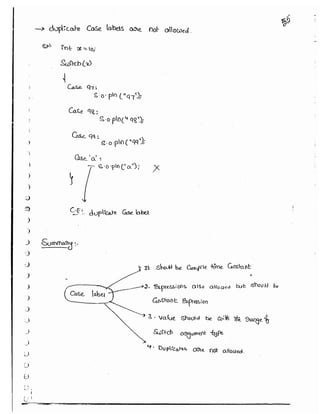 → duplicate Case labels are not allowed.
Ex:- Int x = 10;
Switch(x)
{
Case 97:
S.o.pln("97");
Case 98:
S.o.pln("98");
Case 99:
S.o.pln("99");
Case 'a':
S.o.pln("a"); X
}
C.E:- duplicate Case label
Summary:-
Case label
1. Should be Compile time Constant
2. Expressions also allowed but should be
Constant Expression
3. Value Should be with the Range of
Switch argument type
4. Duplicates are not allowed.